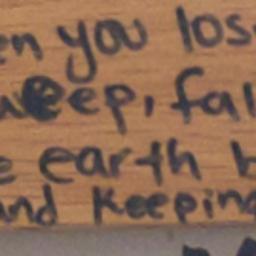 en you los
weep, fal
e earth b
and keeping